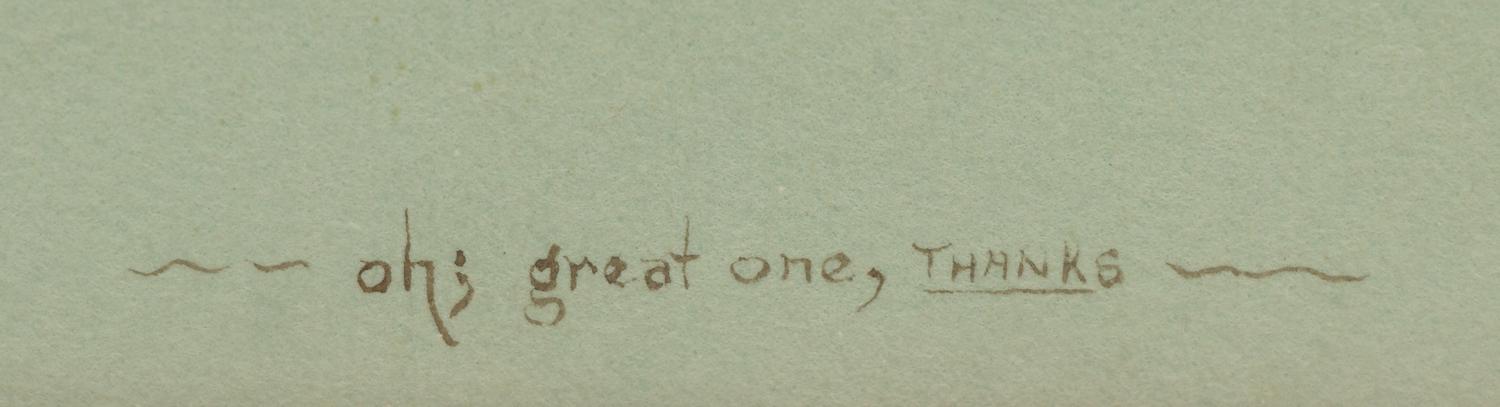 ~ ~ oh; great one, THANKS ~